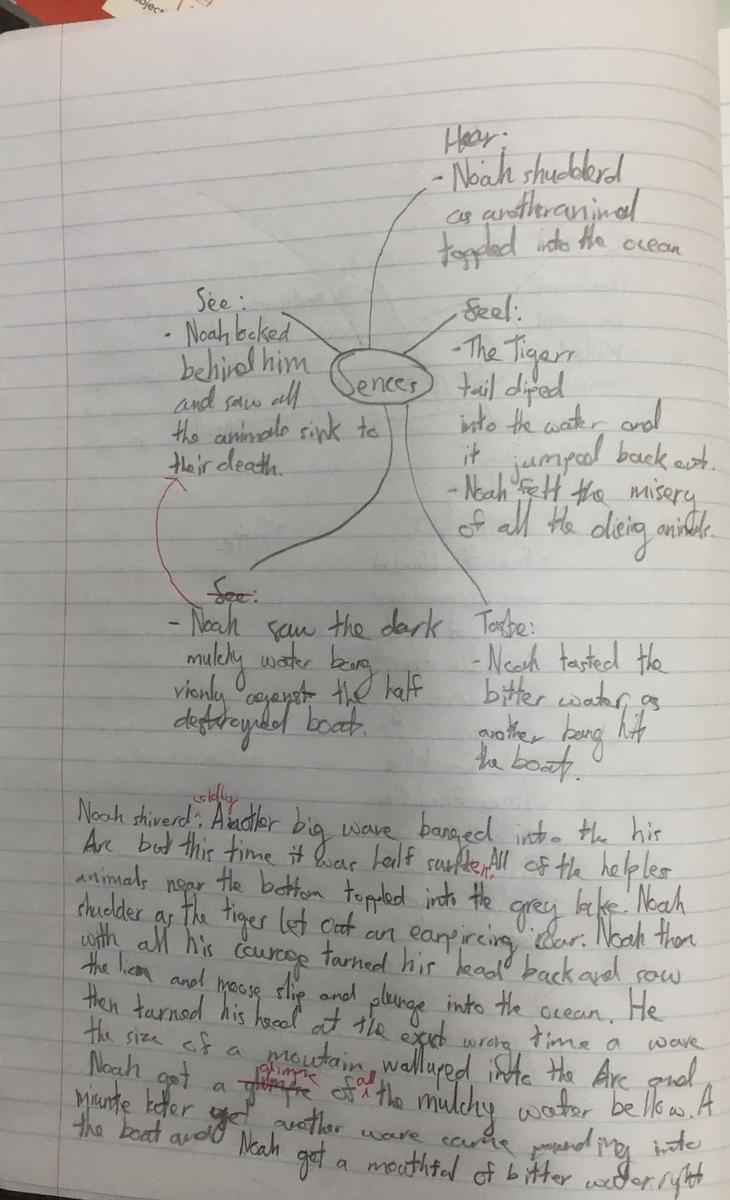 Hear:
- Noah shudderd
as another animal
toppled into the ocean
See:
- Noah looked
behind him
and saw all
the animals sink to
their death.
Sences
Feel:
- The Tigerr
tail diped
into the water and
it jumped back out.
- Noah felt the misery
of all the dieing animals.
See:
- Noah saw the dark
mulchy water bang
vionly against the half
destroyed boat.
Taste:
- Noah tasted the
bitter water as
another bang hit
the boat.
coldly
Noah shiverd. Another big wave banged into the his
Arc but this time it was half sunken. All of the helples
animals near the bottom toppled into the grey lake. Noah
shudder as the tiger let out an earpircing roar. Noah then
with all his courage turned his head back and saw
the lion and moose slip and plunge into the ocean. He
then turned his head at the exact wrong time a wave
the size of a moutain walluped into the Arc and
Noah got a glimpse of all the mulchy water bellow. A
miunte later another wave came pounding into
the boat and Noah got a mouthful of bitter water right